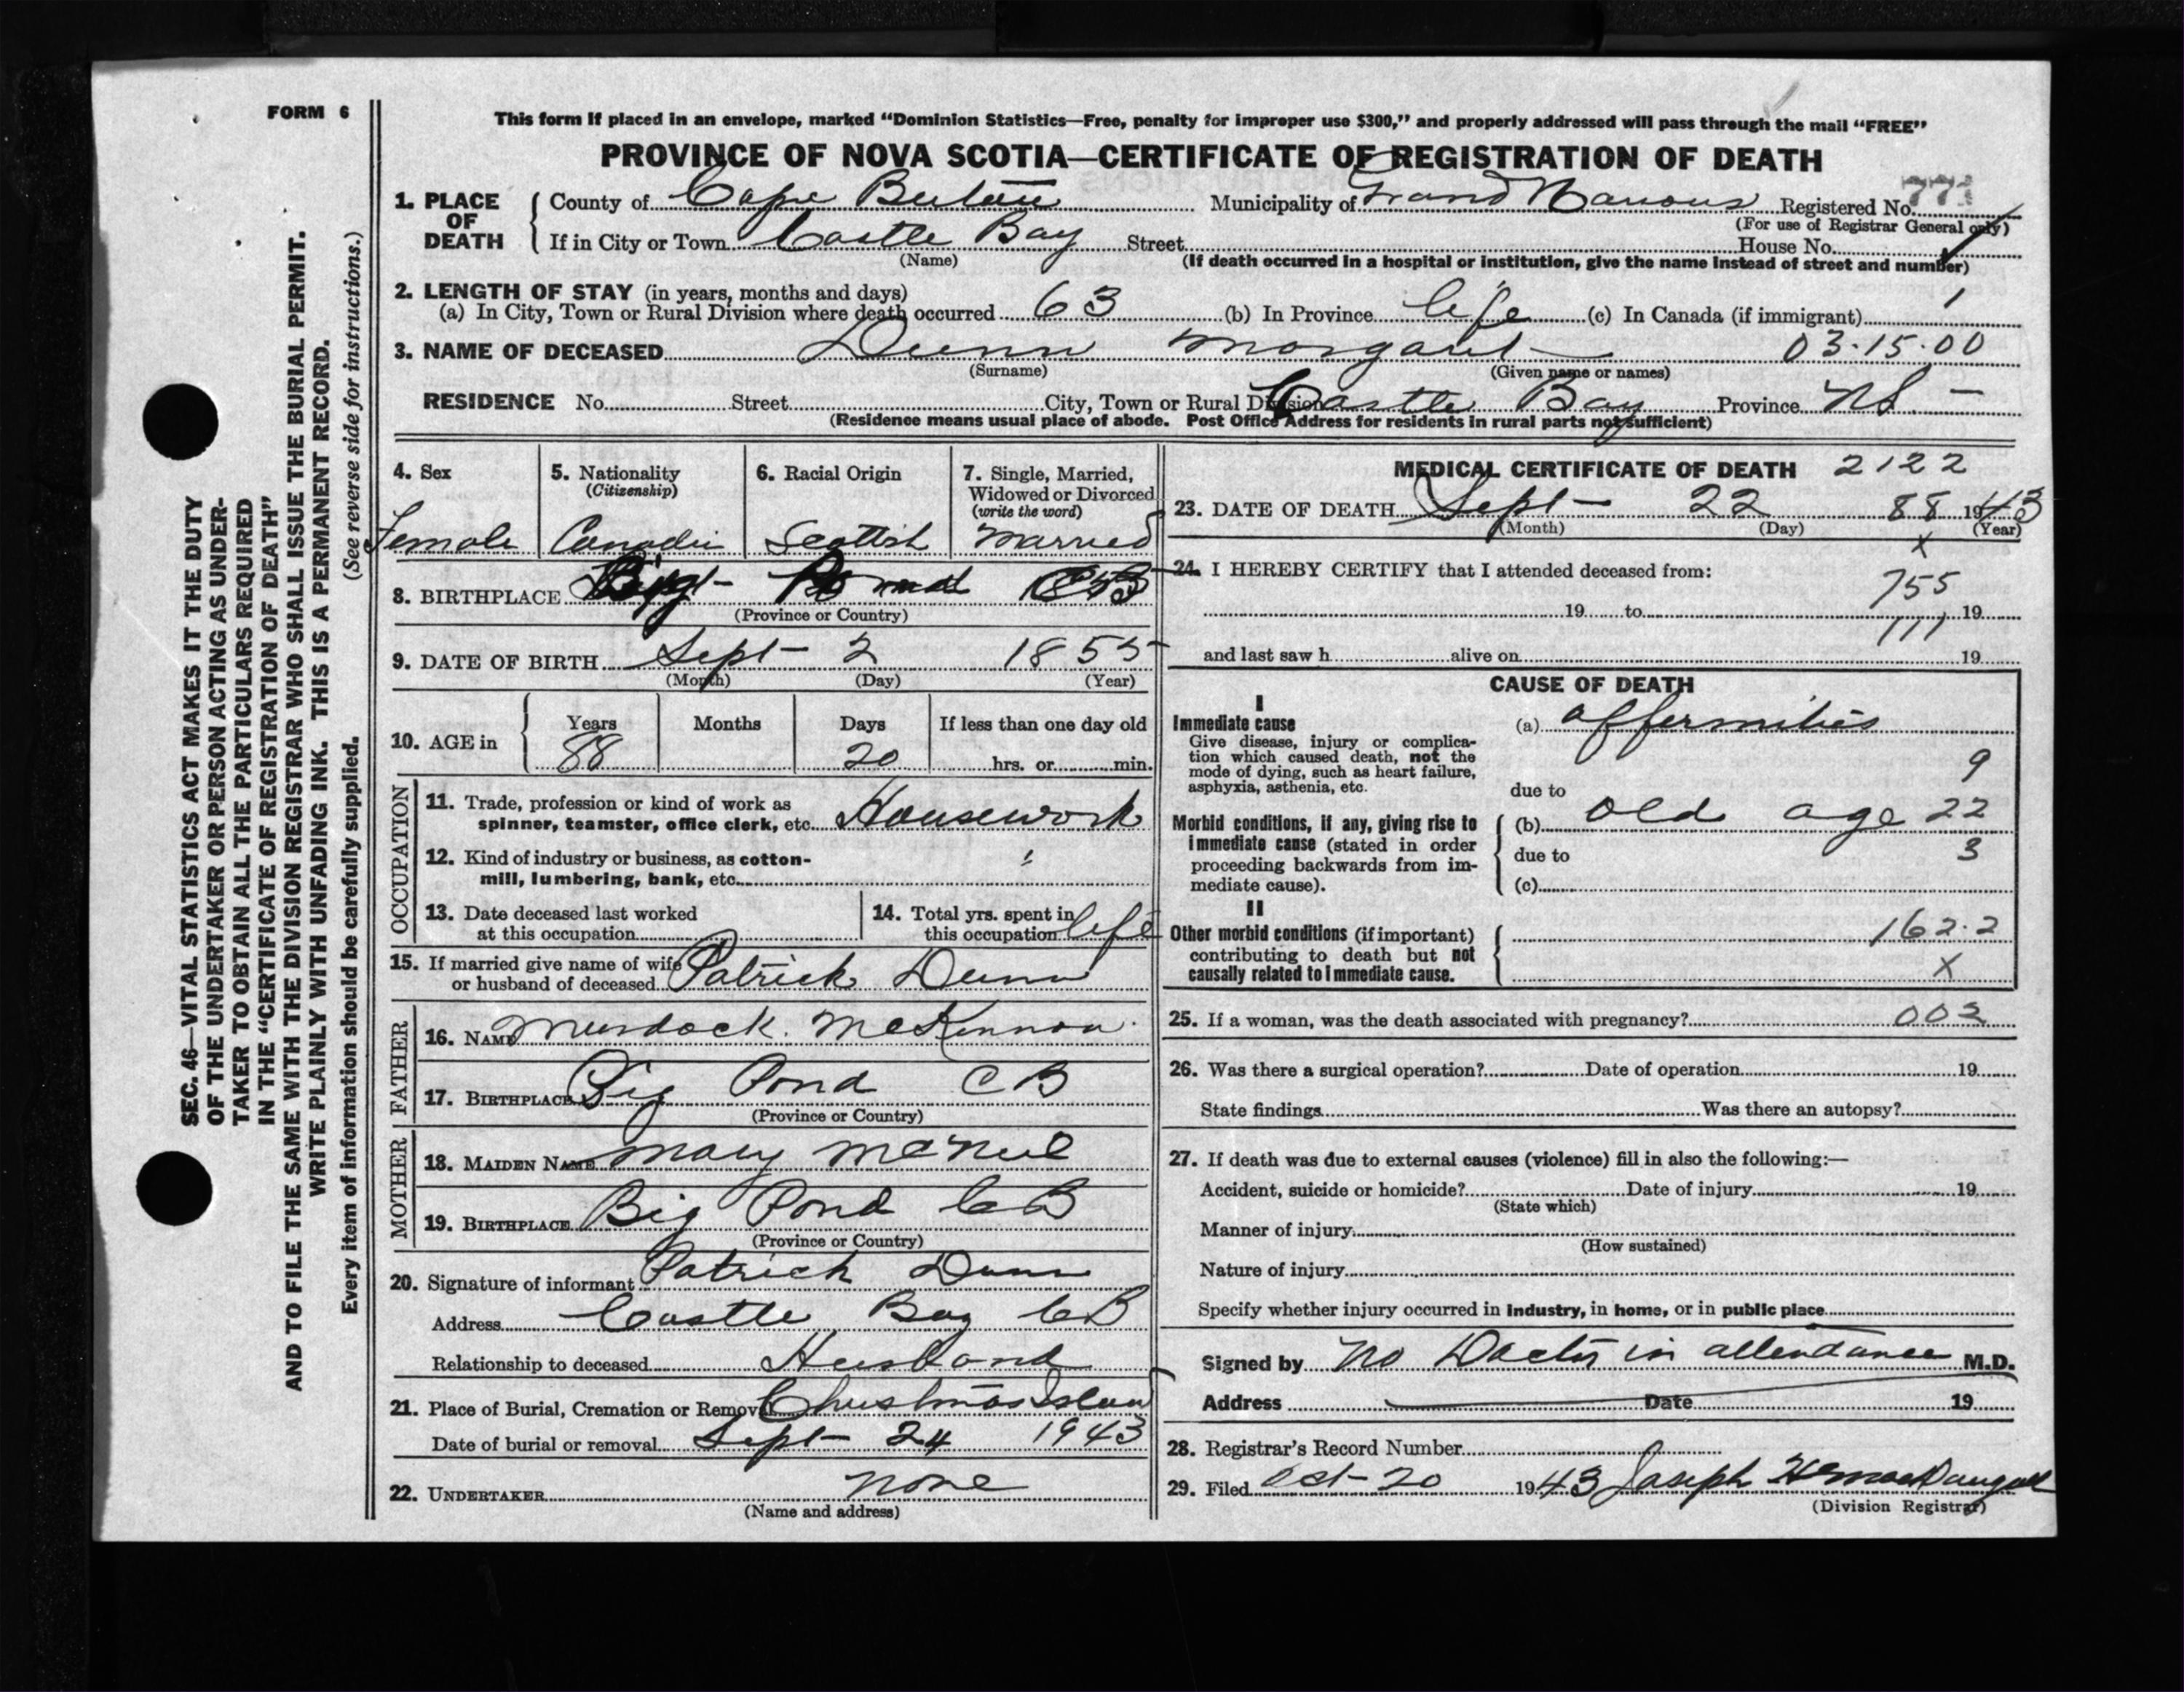 FORM 6
This form if placed in an envelope, marked "Dominion Statistics—Free, penalty for improper use $300," and properly addressed will pass through the mail "FREE"
PROVINCE OF NOVA SCOTIA—CERTIFICATE OF REGISTRATION OF DEATH
1. PLACE OF DEATH
County of Cape Breton Municipality of Grand Narrows Registered No. 771
(For use of Registrar General only)
If in City or Town Castle Bay Street House No.
(Name) (If death occurred in a hospital or institution, give the name instead of street and number)
2. LENGTH OF STAY (in years, months and days)
(a) In City, Town or Rural Division where death occurred 63 (b) In Province life (c) In Canada (if immigrant) 1
3. NAME OF DECEASED Dunn Margaret 03.15.00
(Surname) (Given name or names)
RESIDENCE No. Street City, Town or Rural Division Castle Bay Province NS. -
(Residence means usual place of abode. Post Office Address for residents in rural parts not sufficient)
4. Sex
Female
5. Nationality
(Citizenship)
Canadin
6. Racial Origin
Scottish
7. Single, Married,
Widowed or Divorced
(write the word)
Married
8. BIRTHPLACE Big Pond CB
(Province or Country)
9. DATE OF BIRTH Sept 2 1855
(Month) (Day) (Year)
10. AGE in
Years Months Days If less than one day old
88 20 hrs. or min.
OCCUPATION
11. Trade, profession or kind of work as
spinner, teamster, office clerk, etc. Housework
12. Kind of industry or business, as cotton-
mill, lumbering, bank, etc.
13. Date deceased last worked
at this occupation
14. Total yrs. spent in
this occupation life
15. If married give name of wife
or husband of deceased Patrick Dunn
FATHER
16. NAME Murdock McKinnon
17. BIRTHPLACE Big Pond C B
(Province or Country)
MOTHER
18. MAIDEN NAME Mary McNeil
19. BIRTHPLACE Big Pond C B
(Province or Country)
20. Signature of informant Patrick Dunn
Address Castle Bay C B
Relationship to deceased Husband
21. Place of Burial, Cremation or Removal Christmas Island
Date of burial or removal Sept 24 1943
22. UNDERTAKER none
(Name and address)
MEDICAL CERTIFICATE OF DEATH 2122
23. DATE OF DEATH Sept 22 88 1943
(Month) (Day) (Year)
X
24. I HEREBY CERTIFY that I attended deceased from:
755
19 to 19
111
and last saw h alive on 19
CAUSE OF DEATH
I
Immediate cause
Give disease, injury or complica-
tion which caused death, not the
mode of dying, such as heart failure,
asphyxia, asthenia, etc.
(a) affermities
9
due to
Morbid conditions, if any, giving rise to
immediate cause (stated in order
proceeding backwards from im-
mediate cause).
(b) old age 22
due to 3
(c)
II
Other morbid conditions (if important)
contributing to death but not
causally related to immediate cause.
162.2
X
25. If a woman, was the death associated with pregnancy?
26. Was there a surgical operation? Date of operation 19
State findings Was there an autopsy?
27. If death was due to external causes (violence) fill in also the following:—
Accident, suicide or homicide? Date of injury 19
(State which)
Manner of injury
(How sustained)
Nature of injury
Specify whether injury occurred in industry, in home, or in public place
Signed by No Doctor in attendance M.D.
Address Date 19
28. Registrar's Record Number
29. Filed Oct 20 1943 Joseph H MacDougall
(Division Registrar)
SEC. 46—VITAL STATISTICS ACT MAKES IT THE DUTY
OF THE UNDERTAKER OR PERSON ACTING AS UNDER-
TAKER TO OBTAIN ALL THE PARTICULARS REQUIRED
IN THE "CERTIFICATE OF REGISTRATION OF DEATH"
AND TO FILE THE SAME WITH THE DIVISION REGISTRAR WHO SHALL ISSUE THE BURIAL PERMIT.
WRITE PLAINLY WITH UNFADING INK. THIS IS A PERMANENT RECORD.
Every item of information should be carefully supplied. (See reverse side for instructions.)